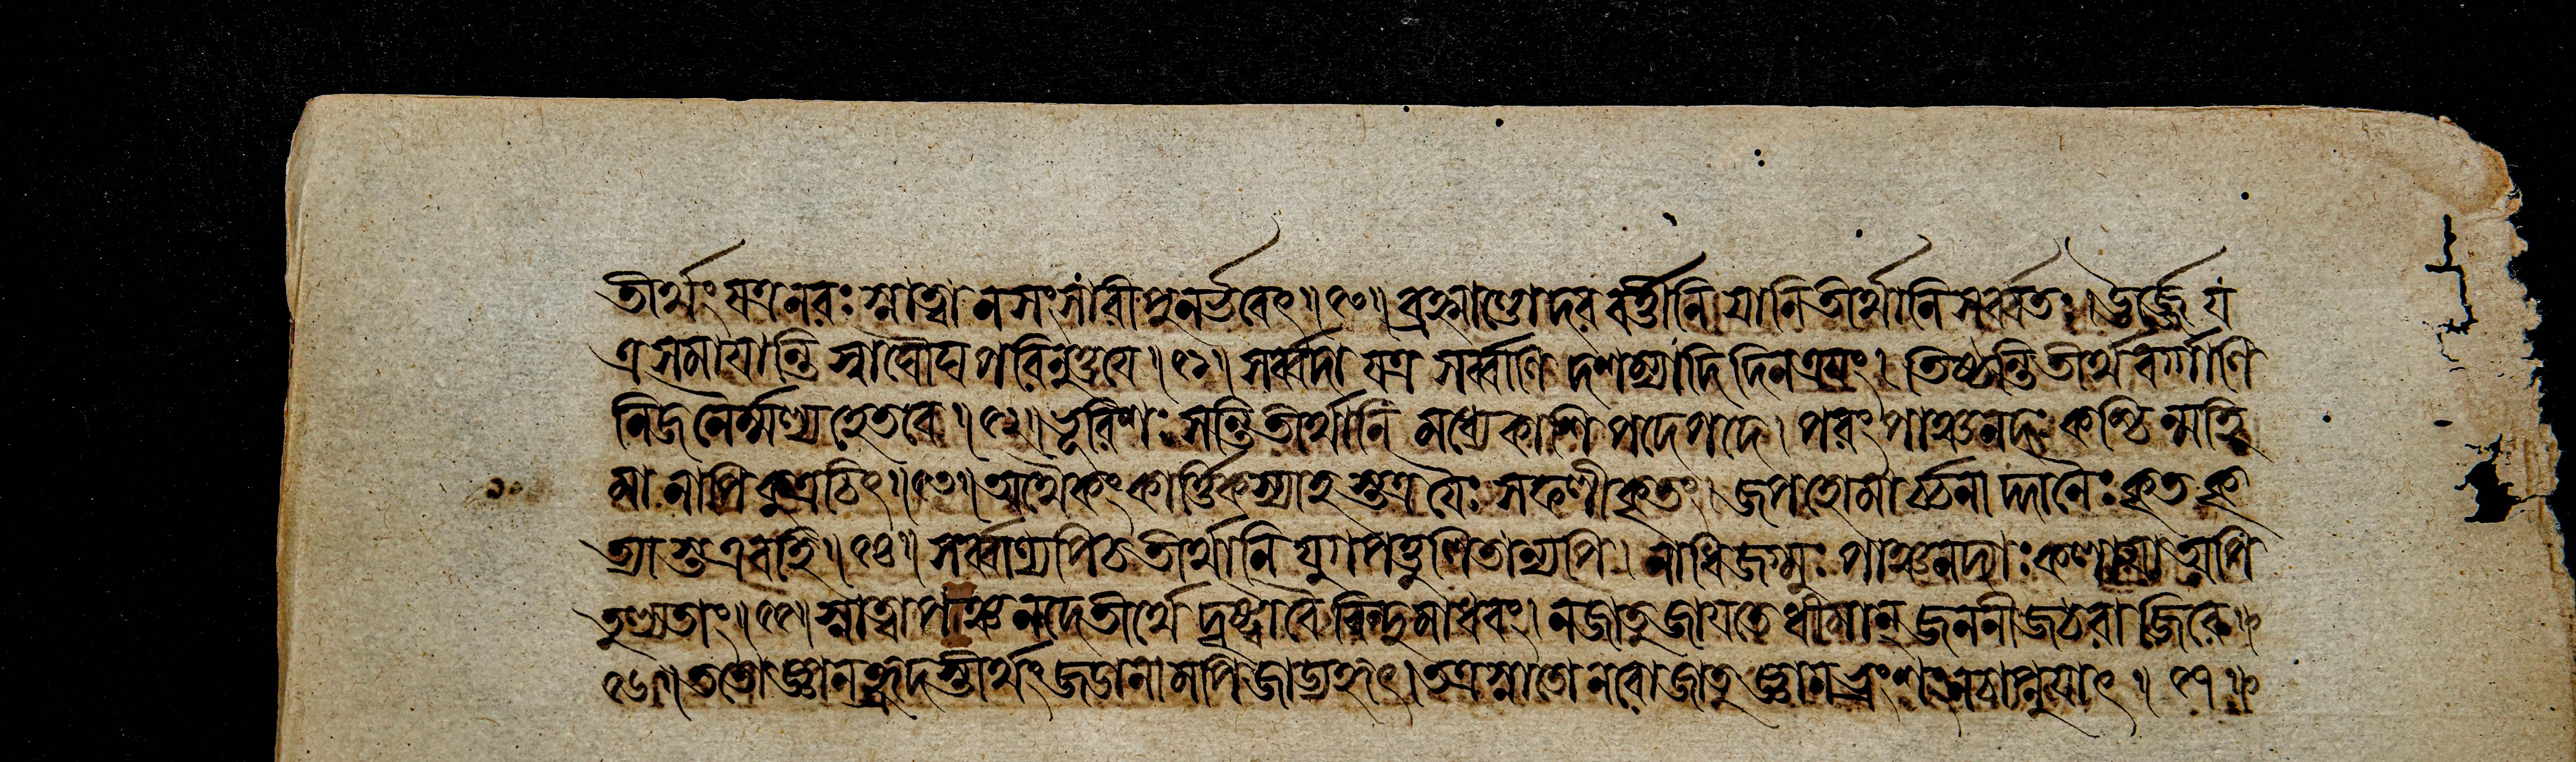 তীর্থং যত্র নরঃ স্নাত্বা ন সংসারী পুনর্ভবেৎ॥৫০॥ ব্রহ্মাণ্ডোদরবর্ত্তীনি যানি তীর্থানি সর্ব্বতঃ। ঊর্জ্জে য
ত্র সমায়ান্তি স্বাঘৌঘপরিনুত্তয়ে॥৫১॥ সর্ব্বদা যত্র সর্ব্বাণি দশম্যাদিদিনত্রয়ং। তিষ্ঠন্তি তীর্থবর্য্যাণি
নিজনৈর্ম্মল্যহেতবে॥৫২॥ ভূরিশঃ সন্তি তীর্থানি মধ্যেকাশি পদে পদে। পরং পাঞ্চনদঃ কশ্চিন্মহি
মা নাপি কুত্রচিৎ॥৫৩॥ অপ্যেকং কার্ত্তিকস্যাহস্তত্র যৈঃ সফলীকৃতং। জপহোমার্চ্চনাদ্দানৈঃ কৃতকৃ
ত্যাস্ত এব হি॥৫৪॥ সর্ব্বাণ্যপি চ তীর্থানি যুগপত্তুলিতান্যপি। নাধিজগ্মুঃ পাঞ্চনদ্যাঃ কলায়া অপি
তুল্যতাং॥৫৫॥ স্নাত্বা পাঞ্চনদে তীর্থে দৃষ্ট্বা বৈ বিন্দুমাধবং। ন জাতু জায়তে ধীমান্ জননীজঠরাজিরে॥
৫৬॥ ততো জ্ঞানহ্রদস্তীর্থং জডানামপি জাড্যহৃৎ। তত্র স্নাতো নরো জাতু জ্ঞানভ্রংশং ন চাপ্নুয়াৎ॥৫৭॥